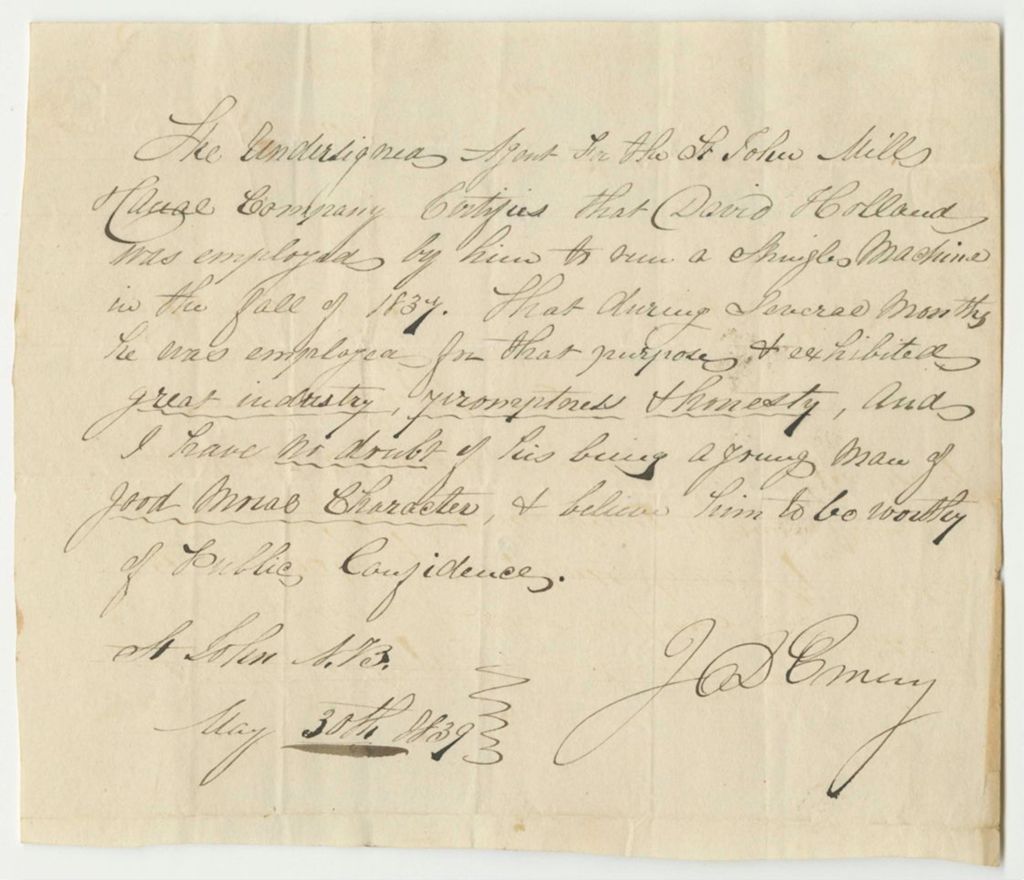 The Undersigned Agent for the St John Mills
Canal Company Certifies that David Holland
was employed by him to run a Shingle Machine
in the fall of 1837. That during Several Months
he was employed for that purpose, & exhibited
great industry, promptness & honesty, and
I have no doubt of his being a young man of
good Moral Character, & believe him to be worthy
of Public Confidence.
St John N.B.
May 30th 1839
J D Emery